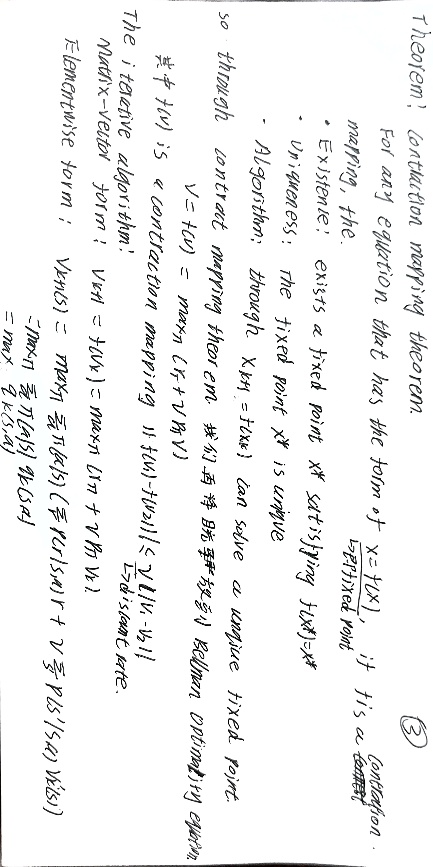 ③
Theorem: Contraction mapping theorem
For any equation that has the form of x=f(x), if f is a contraction
↳即fixed point
mapping, the.
• Existence: exists a fixed point x* satisfying f(x*)=x*
• Uniqueness: The fixed point x* is unique
• Algorithm: through Xk+1=f(xk) can solve a unqiue fixed point.
so through contract mapping theorem 我们再将 到 Bellman optimality equation
V=f(v) = maxπ(rπ+γPπV)
其中 f(v) is a contraction mapping ||f(v1)-f(v2)||≤γ||v1-v2||
↳discount rate.
The iterative algorithm:
Matrix-Vector form: Vk+1=f(Vk)=maxπ(rπ+γPπVk)
Elementwise form: Vk+1(s) = maxπ Σπ(a|s)(Σp(r|s,a)r+γΣp(s'|s,a)Vk(s'))
=maxπ Σπ(a|s)qk(s,a)
=max qk(s,a)